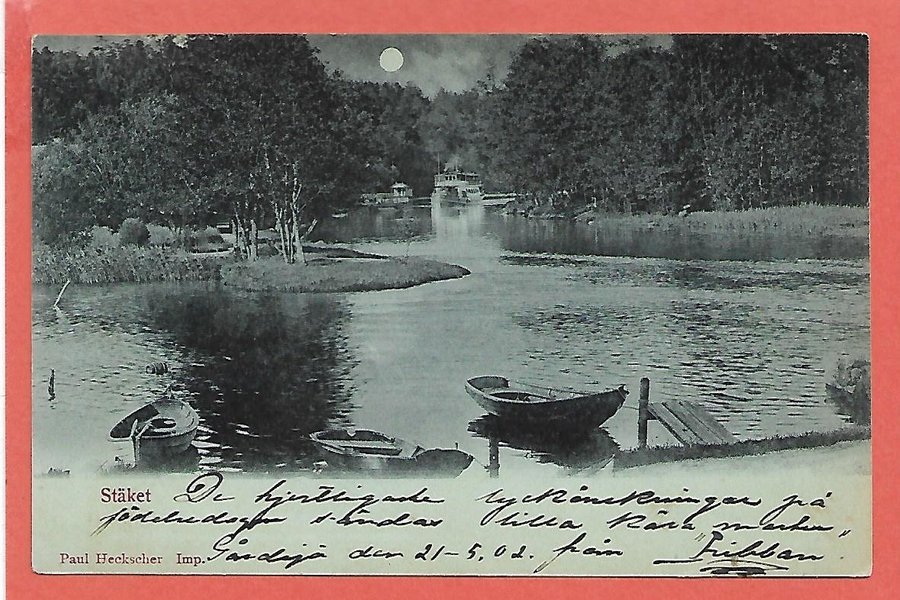 Stäket De hjertligaste lyckönskningar på
födelsedagen sändas lilla kära
Paul Heckscher Imp. den 21-5.02. från